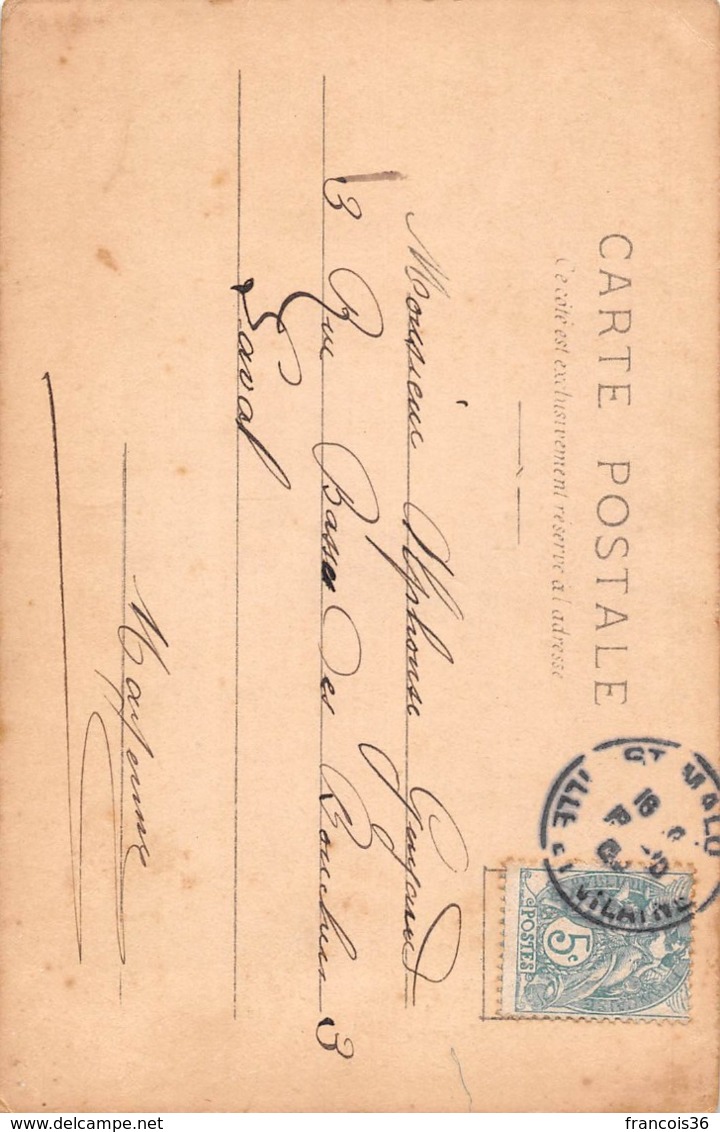 CARTE POSTALE
Ce côté est exclusivement réservé à l'adresse
Monsieur Alphonse Guyard
3 Rue Basse des Bouchers 3
Laval
Mayenne
ST MALO
ILLE-ET-VILAINE
5c
POSTES
francois36
delcampe.net